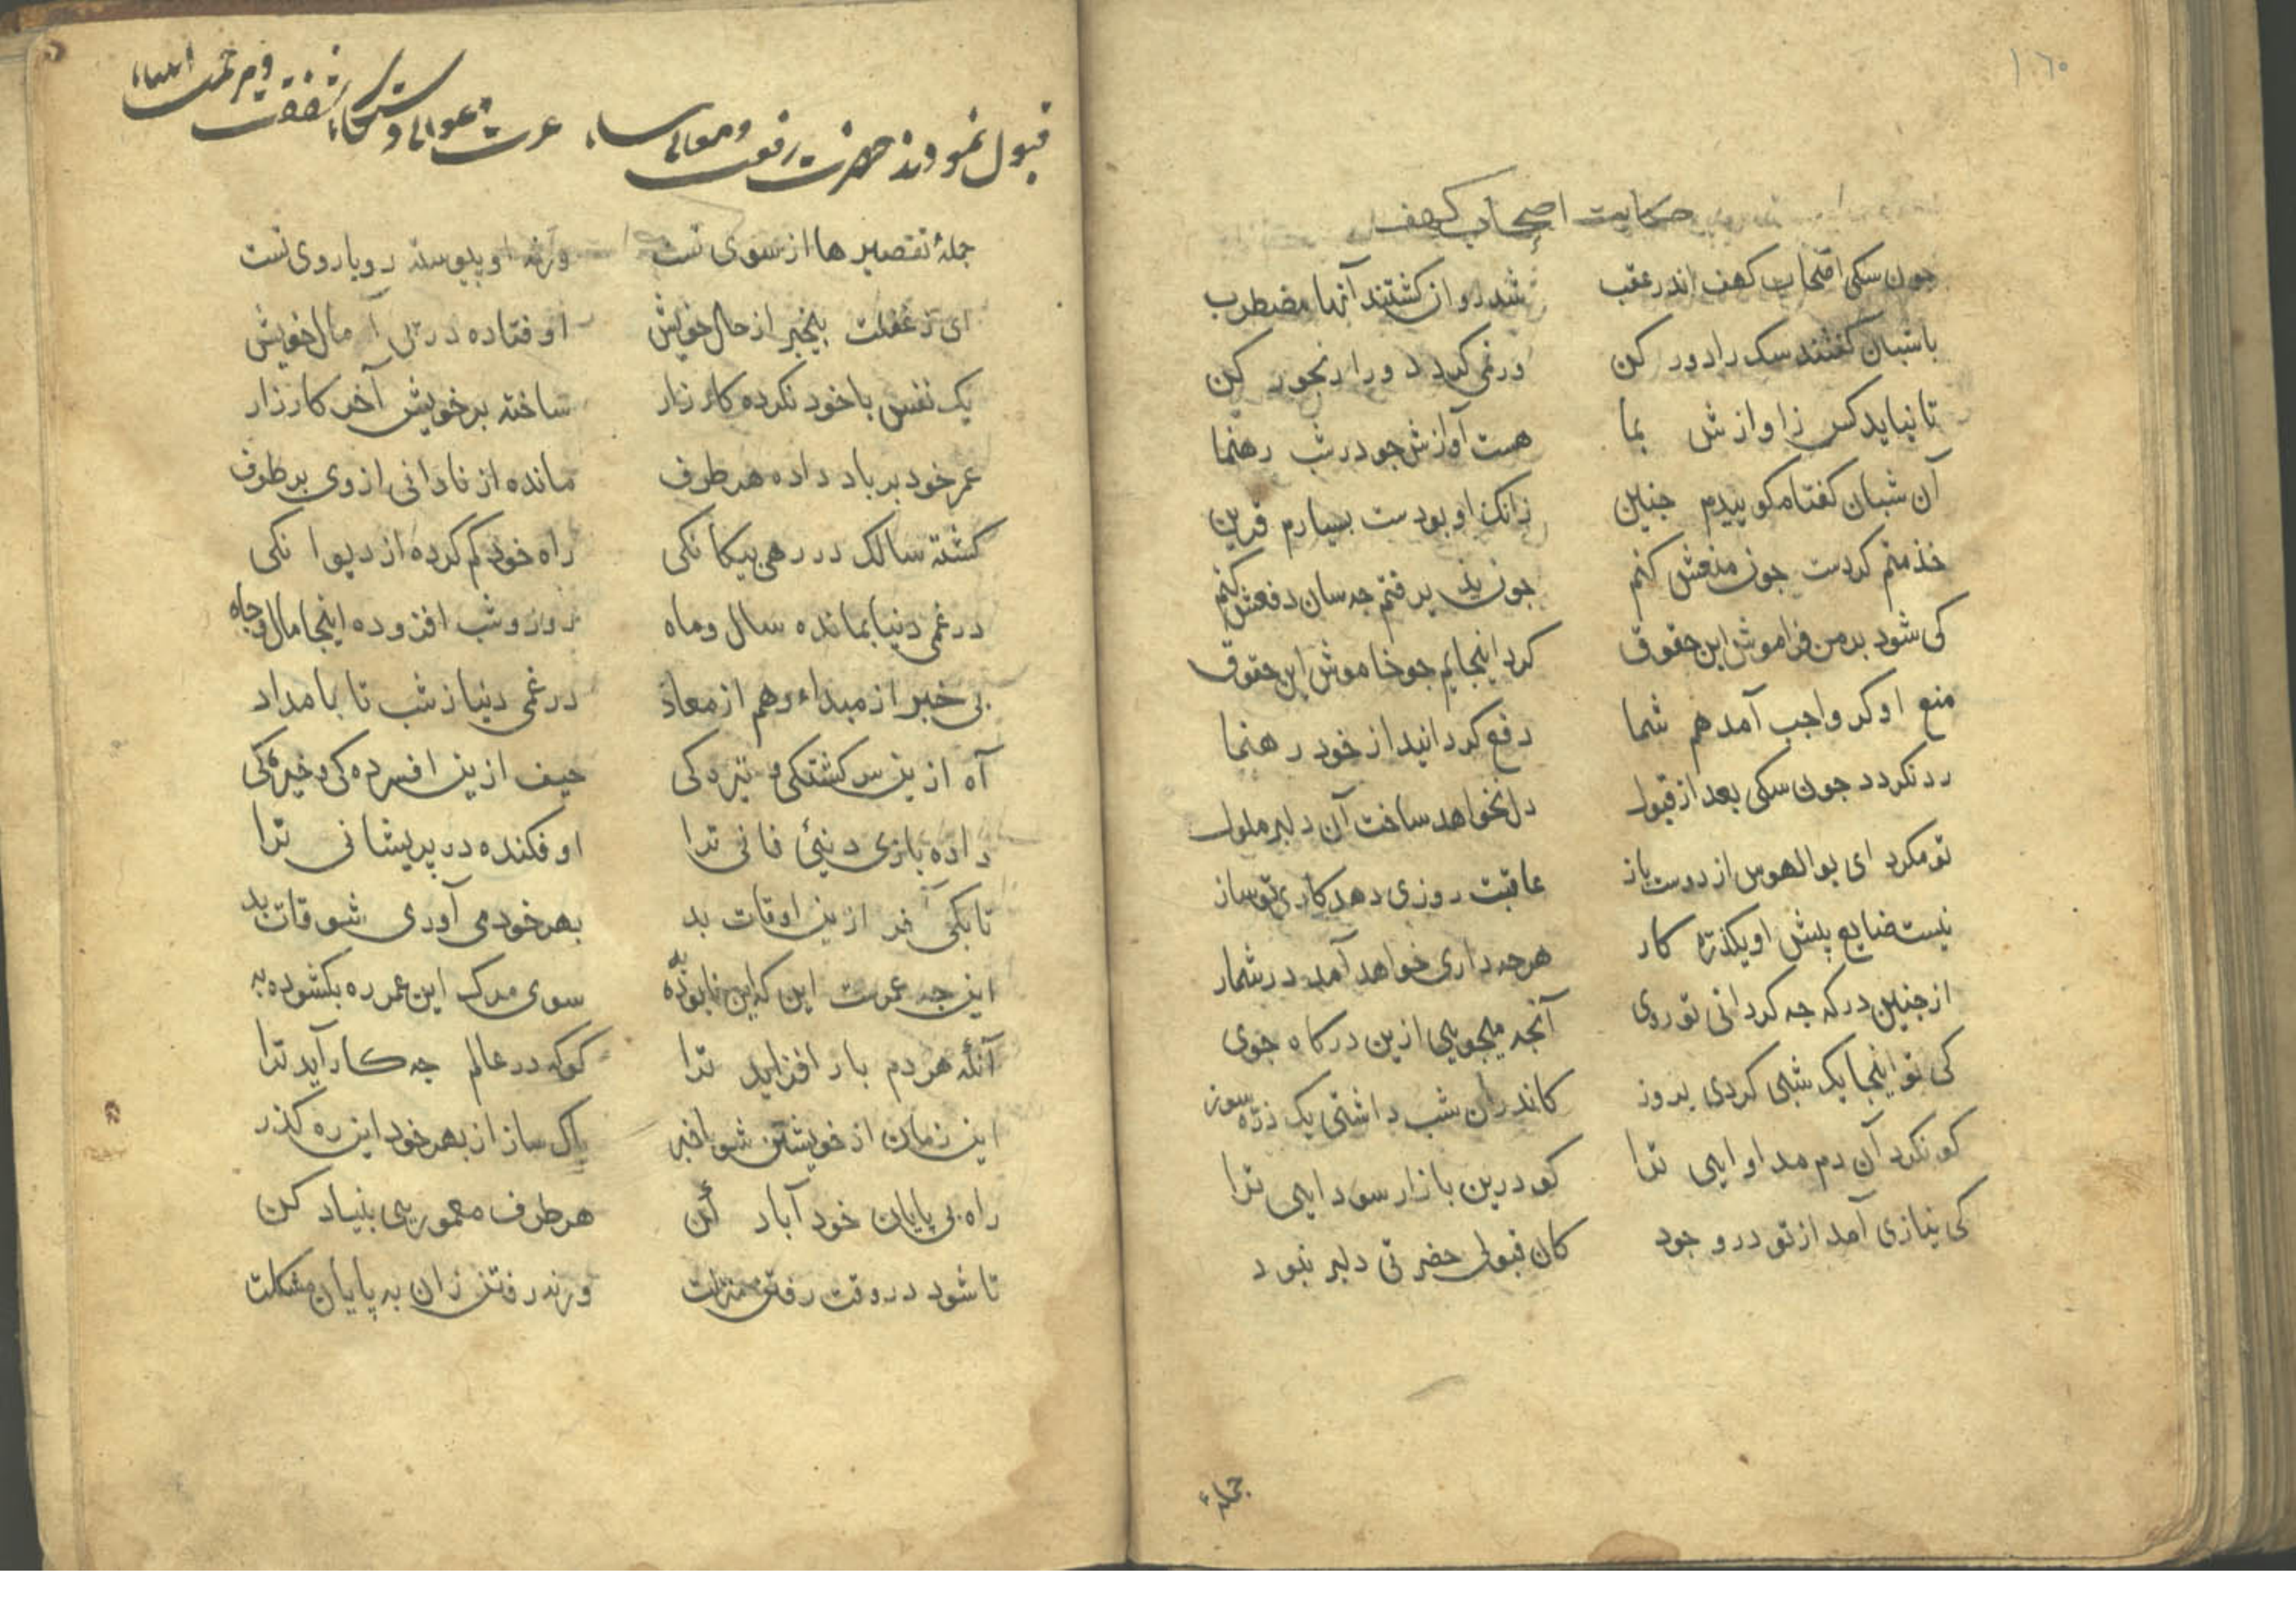 ١٦٠
حکایت اصحاب کهف
جون سکی اصحاب کهف اندر عقب شد روان کشتند آنها مضطرب
با شبان کفتند سک را دور کن ور نمی کردد ورا رنجور کن
تا نیاید کس ز اوازش بما هست آوازش جو در شب رهنما
آن شبان کفتا مکوییدم جنین زانک او بودست بسیارم قرین
خذمتم کردست جون منعش کنم جون پذیرفتم جه سان دفعش کنم
کی شود بر من فراموش این حقوق کرد اینجایم جو خاموش این حقوق
منع او کر واجب آمد هم شما دفع کردانید از خود رهنما
رد نکردد جون سکی بعد از قبول دل نخواهد ساخت آن دلبر ملول
تو مکرد ای بوالهوس از دوست باز عاقبت روزی دهد کاری تو ساز
نیست ضایع پیش او یکذره کار هرجه داری خواهد آمد در شمار
از جنین درکه جه کردانی تو روی آنجه میجویی ازین درکاه جوی
کی تو اینجا یک شبی کردی بروز کاندران شب داشتی یک ذره سوز
کو نکرد آن دم مداوایی ترا کو درین بازار سودایی ترا
کی نیازی آمد از تو در وجود کان قبول حضرتی دلبر نبود
جملهٔ
قبول نمودند حضرت رفعت و معالی
عزت و عوالی شفقت
جملهٔ تقصیرها از سوی تست ورنه او پیوسته رویاروی تست
ای ز غفلت بیخبر از حال خویش اوفتاده در پی آمال خویش
یک نفس با خود نکرده کارزار ساخته بر خویش آخر کارزار
عمر خود بر باد داده هر طرف مانده از نادانی از وی بر طرف
کشته سالک در رهی بیکانکی راه خود کم کرده از دیوانکی
در غمی دنیا بمانده سال و ماه روز و شب افزوده اینجا مال و جاه
بی خبر از مبداء و هم از معاد در غمی دنیا ز شب تا بامداد
آه ازین سرکشتکی و تیره کی حیف ازین افسرده کی و خیره کی
داده بازی دنیئی فانی ترا اوفکنده در پریشانی ترا
تا بکی آخر ازین اوقات بد بهر خود می آوری شوقات بد
این جه عمرست این که این نابوده به سوی مرک این عمر ره بکشوده به
آنکه هر دم بار افزاید ترا کو که در عالم جه کار آید ترا
این زمان از خویشتن شو باخبر پاک ساز از بهر خود این ره کذر
راه بی پایان خود آباد کن هر طرف معموریی بنیاد کن
تا شود در وقت رفتن منزلت ورنه رفتن زان به پایان مشکلت